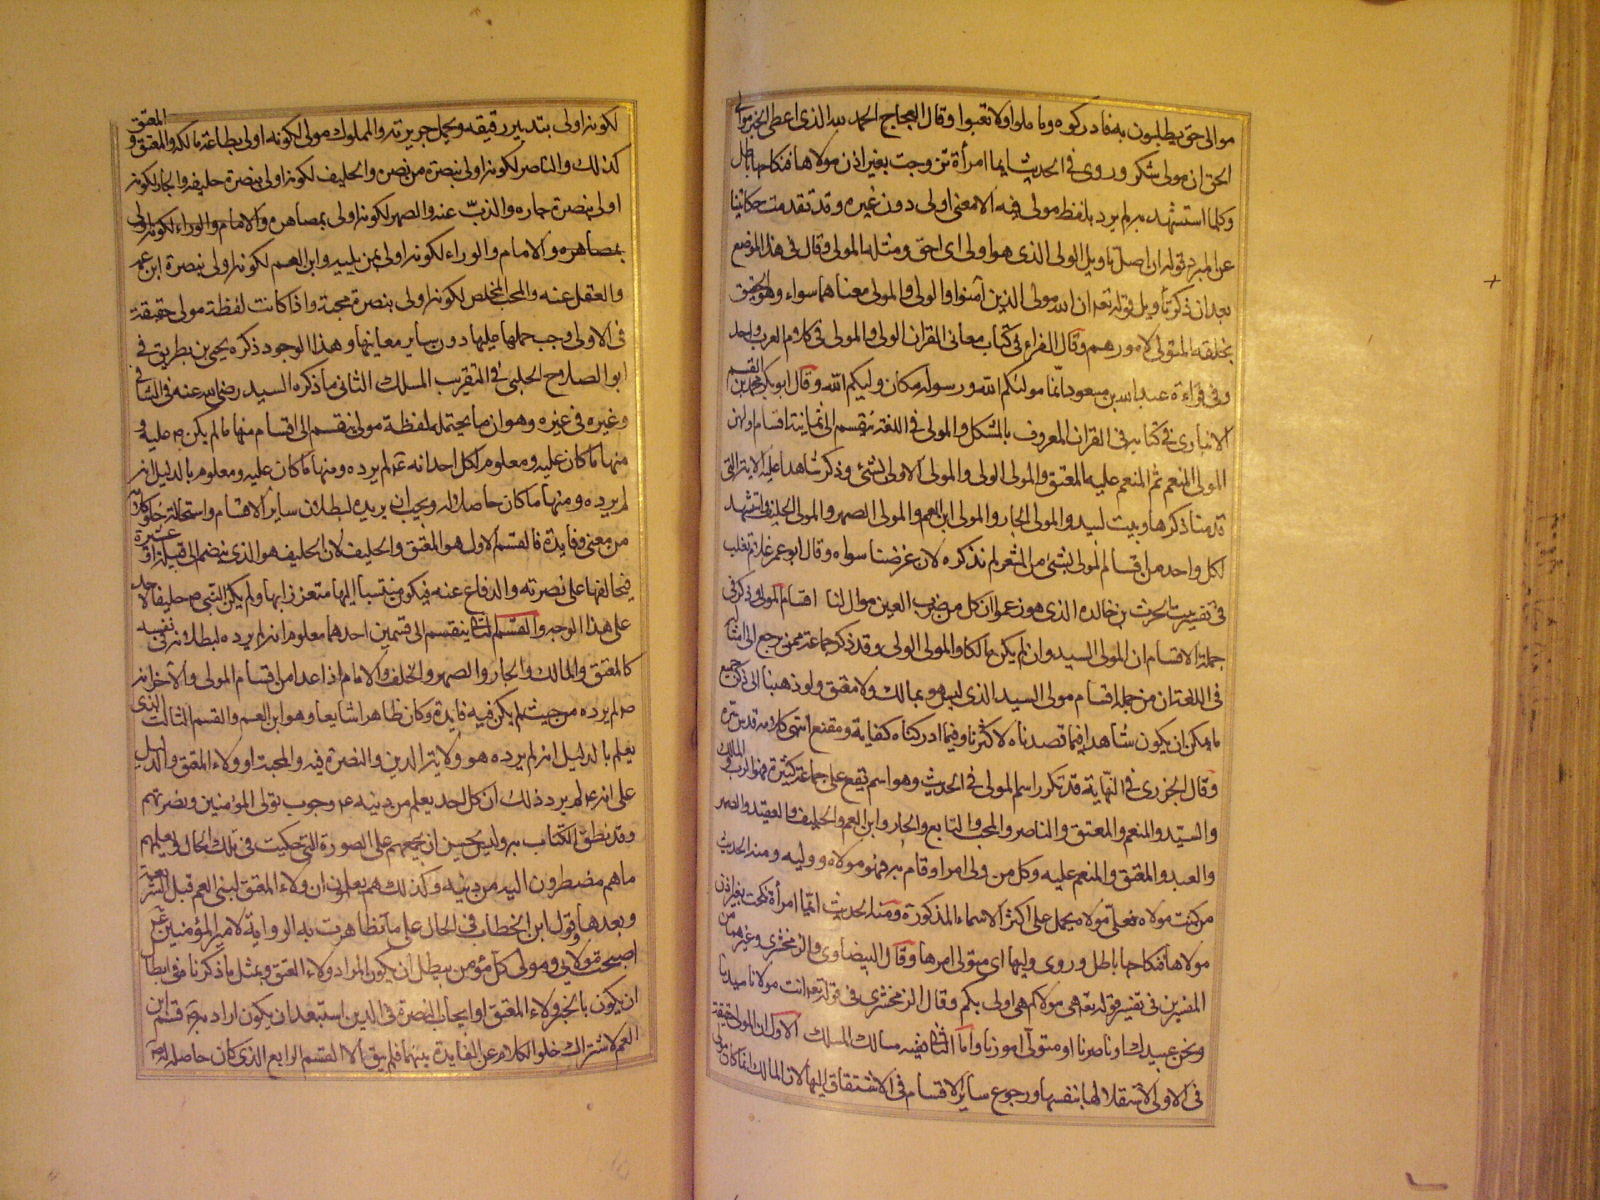 موالى حق يطلبون به فادركوه وما ملوا ولا تعبوا وقال العجاج الحمد لله الذى اعطى الخير موالى
الحق ان مولى شكر وروى فى الحديث ايما امرأة تزوجت بغير اذن مولاها فنكاحها باطل
وكلما استشهد به لم يرد بلفظ مولى فيه الا معنى اولى دون غيره وقد تقدمت حكايتنا
عن المبرد قوله ان اصل تاويل الولى الذى هو اولى اى احق ومثله المولى وقال فى هذا الموضع
بعد ان ذكر تأويل قوله تعه ان الله مولى الذين آمنوا والولى والمولى معناهما سواء وهو الحقيق
بخلقه المتولى لامورهم وقال الفراء فى كتاب معانى القران الولى والمولى فى كلام العرب واحد
وفى قراءة عبد الله بن مسعود انما مولئكم الله ورسوله مكان وليكم الله وقال ابو بكر محمد بن القسم
الانبارى فى كتابه فى القران المعروف بالمشكل والمولى فى اللغة ينقسم الى ثمانية اقسام اولهن
المولى المنعم ثم المنعم عليه المعتق والمولى الولى والمولى الاولى بشئ وذكر شاهدا عليه الاية التى
قدمنا ذكرها وبيت لبيد والمولى الجار والمولى ابن العم والمولى الصهر والمولى الحليف واستشهد
لكل واحد من اقسام المولى بشئ من الشعر لم نذكره لان غرضنا سواه وقال ابو عمر غلام ثعلب
فى تفسير بيت الحرث بن حلزه الذى هو زعموا ان كل من ضرب العين موال لنا اقسام المولى وذكر فى
جملة الاقسام ان المولى السيد وان لم يكن مالكا والمولى الولى وقد ذكر جماعة ممن يرجع الى امثالهم
فى اللغة ان من جملة اقسام مولى السيد الذى ليس هو بمالك ولا معتق ولو ذهبنا الى ذكر جميع
ما يمكن ان يكون شاهدا فيما قصدناه لاكثرنا وفيما ادركناه كفاية ومقنع انتهى كلامه قدس سره
وقال الجزرى فى النهاية قد تكرر اسم المولى فى الحديث وهو اسم يقع على جماعة كثيرة فهو الرب والمالك
والسيد والمنعم والمعتق والناصر والمحب والتابع والجار وابن العم والحليف والعقيد والصهر
والعبد والمعتق والمنعم عليه وكل من ولى امرا وقام به فهو مولاه ووليه ومنه الحديث
من كنت مولاه فعلى مولاه يحمل على اكثر الاسماء المذكورة ومنه الحديث ايما امرأة نكحت بغير اذن
مولاها فنكاحها باطل وروى وليها اى متولى امرها وقال البيضاوى والزمخشرى وغيرهما من
المفسرين فى تفسير قوله تعه هى مولاكم هى اولى بكم وقال الزمخشرى فى قوله تعه انت مولانا سيدنا
ونحن عبيدك او ناصرنا او متولى امورنا واما الثانى ففيه مسالك المسلك الاول ان المولى حقيقة
فى الاولى لاستقلالها بنفسها ورجوع سائر الاقسام فى الاشتقاق اليها لان المالك انما كان مولى
لكونه اولى بتدبير رقيقه وبحمل جريرته والمملوك مولى لكونه اولى بطاعة مالكه والمعتق والمعتق
كذلك والناصر لكونه اولى بنصرة من نصره والحليف لكونه اولى بنصرة حليفه والجار لكونه
اولى بنصرة جاره والذب عنه والصهر لكونه اولى بمصاهره والامام والوراء لكونه اولى
بمصاهره والامام والوراء لكونه اولى بمن يليه وابن العم لكونه اولى بنصرة ابن عمه
والعقل عنه والمحب المخلص لكونه اولى بنصرة محبه واذا كانت لفظة مولى حقيقة
فى الاولى وجب حملها عليها دون سائر معانيها وهذا الوجه ذكره يحيى بن بطريق فى
ابو الصلاح الحلبى فى التقريب المسلك الثانى ما ذكره السيد رضى الله عنه فى الشافى
وغيره فى غيره وهو ان ما يحتمله لفظة مولى ينقسم الى اقسام منها ما لم يكن ص عليه و
منها ما كان عليه ومعلوم لكل احد انه عم لم يرده ومنها ما كان عليه ومعلوم بالدليل انه
لم يرده ومنها ما كان حاصلا له ويجب ان يريده لبطلان سائر الاقسام واستحالة خلو كلامه
من معنى وفايدة فالقسم الاول هو المعتق والحليف لان الحليف هو الذى ينضم الى قبيلة او عشيرة
فيحالفها على نصرته والدفاع عنه فيكون منتسبا اليها متعززا بها ولم يكن النبى ص حليفا لاحد
على هذا الوجه والقسم الثانى ينقسم الى قسمين احدهما معلوم انه لم يرده لبطلانه فى نفسه
كالمعتق والمالك والجار والصهر والخلف والامام اذا عدا من اقسام المولى والآخر انه
ص لم يرده من حيث لم يكن فيه فايدة وكان ظاهرا شايعا وهو ابن العم والقسم الثالث الذى
يعلم بالدليل انه لم يرده هو ولاية الدين والنصرة فيه والمحبة او ولاء المعتق والدليل
على انه عم لم يرد ذلك ان كل احد يعلم من دينه عم وجوب تولى المؤمنين ونصرتهم
وقد نطق الكتاب به وليس يحسن ان يجمعهم على الصورة التى حكيت فى تلك الحال ويعلمهم
ما هم مضطرون اليه من دينه وكذلك هم يعلمون ان ولاء المعتق لبنى العم قبل الشريعة
وبعدها وقول ابن الخطاب فى الحال على ما تظاهرت به الرواية لامير المؤمنين عم
اصبحت مولاى ومولى كل مؤمن يبطل ان يكون المراد ولاء العتق وبمثل ما ذكرنا فى ابطال
ان يكون بالخبر ولاء المعتق او ايجاب النصرة فى الدين استبعد ان يكون اراد به قسم ابن
العم لاشتراك خلو الكلام عن الفايدة بينهما فلم يبق الا القسم الرابع الذى كان حاصلا له